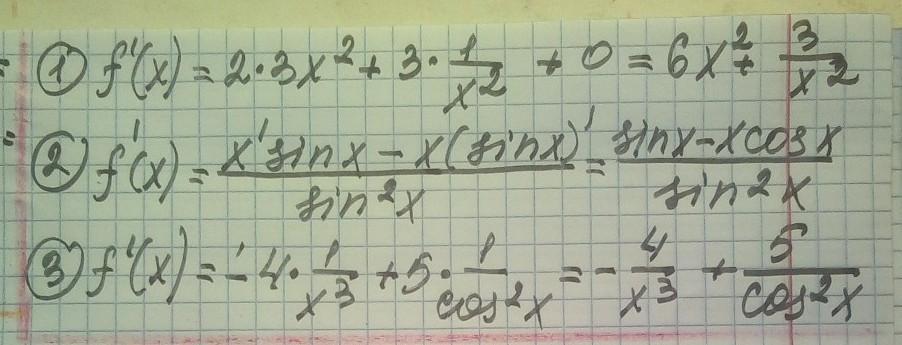 ① f'(x) = 2·3x² + 3·1/x² + 0 = 6x² + 3/x²
② f'(x) = (x' sinx − x(sinx)')/sin²x = (sinx − x cosx)/sin²x
③ f'(x) = −4·1/x³ + 5·1/cos²x = −4/x³ + 5/cos²x